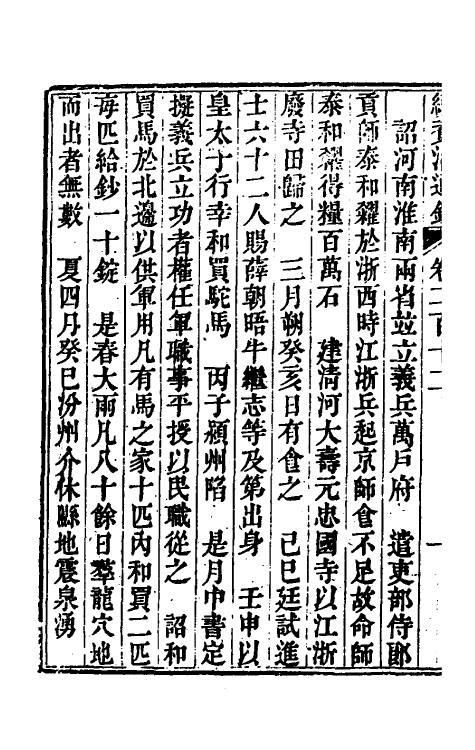 續資治通鑑 卷二百十二 一
詔河南淮南兩省並立義兵萬戶府　遣吏部侍郎
貢師泰和糴於浙西時江浙兵起京師食不足故命師
泰和糴得糧百萬石　建清河大壽元忠國寺以江浙
廢寺田歸之　三月朔癸亥日有食之　己巳廷試進
士六十二人賜薛朝晤牛繼志等及第出身　壬申以
皇太子行幸和買駝馬　丙子潁州陷　是月中書定
擬義兵立功者權任軍職事平授以民職從之　詔和
買馬於北邊以供軍用凡有馬之家十匹內和買二匹
每匹給鈔一十錠　是春大雨凡八十餘日羣龍穴地
而出者無數　夏四月癸巳汾州介休縣地震泉湧